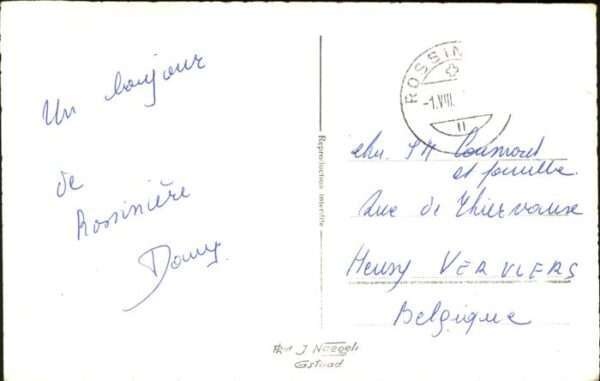 Un bonjour
de
Rossinière
Dany
Reproduction interdite
ROSSIN
-1.VIII.
et famille.
Rue de Thiervaux
Heusy VERVIERS
Belgique
J Naegeli
Gstaad